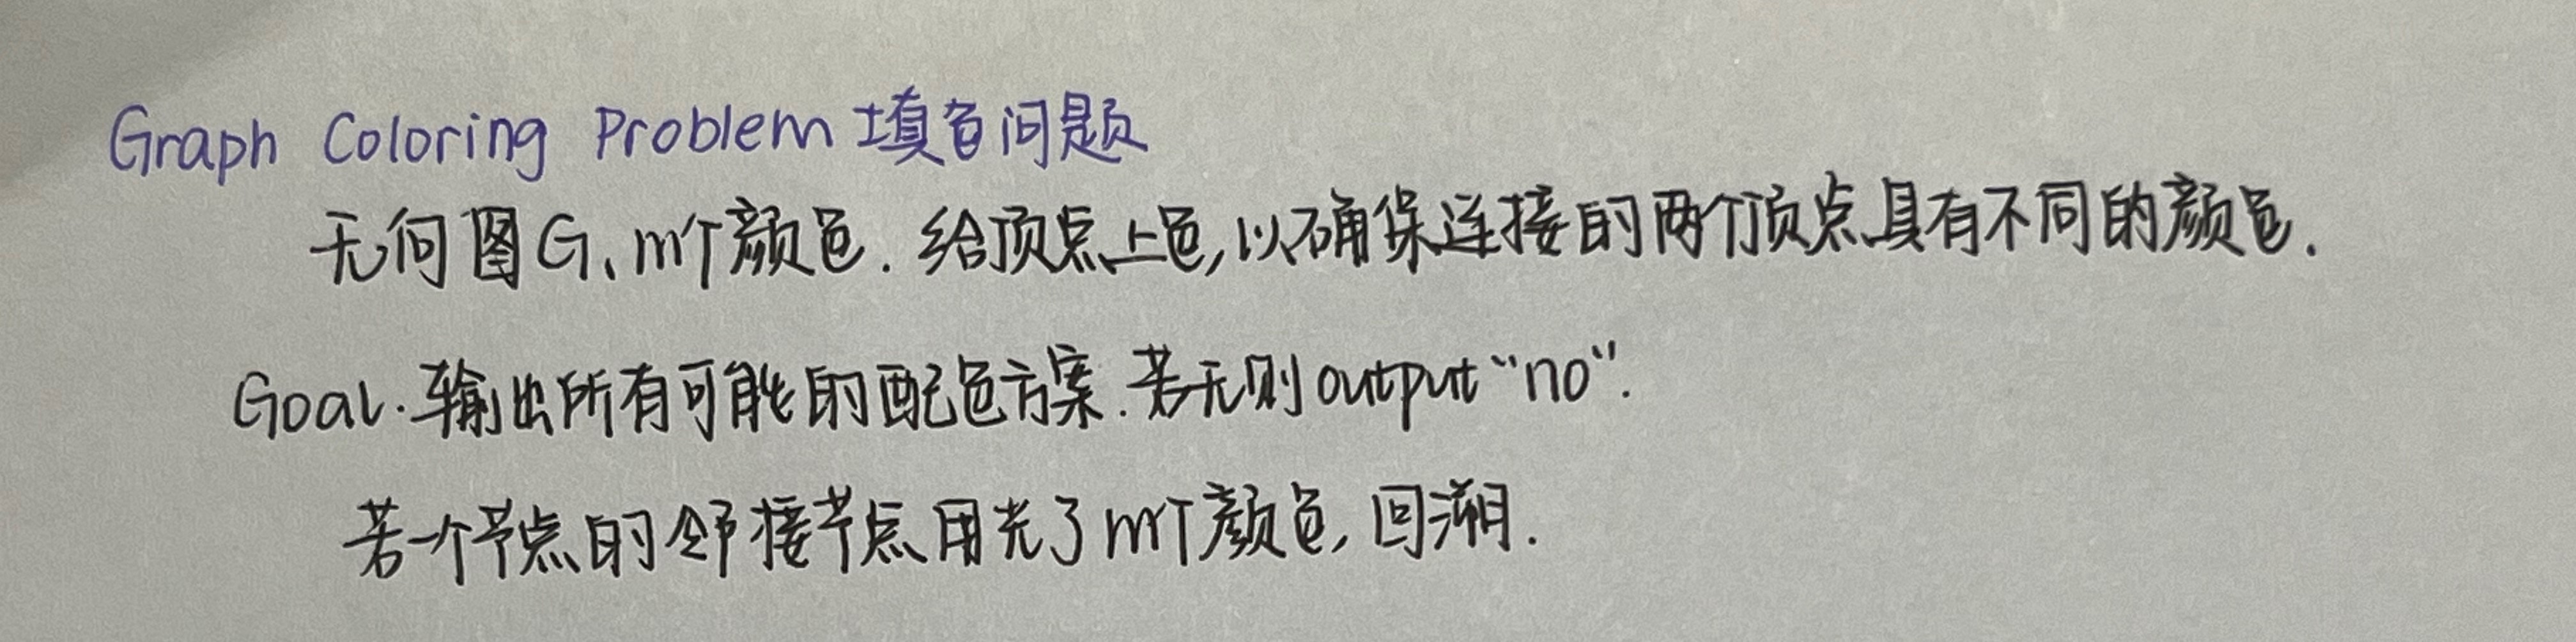 Graph Coloring Problem 填色问题
无向图G、m个颜色. 给顶点上色,以确保连接的两个顶点具有不同的颜色.
Goal. 输出所有可能的配色方案. 若无则output "no".
若一个节点的邻接节点用光了m个颜色, 回溯.